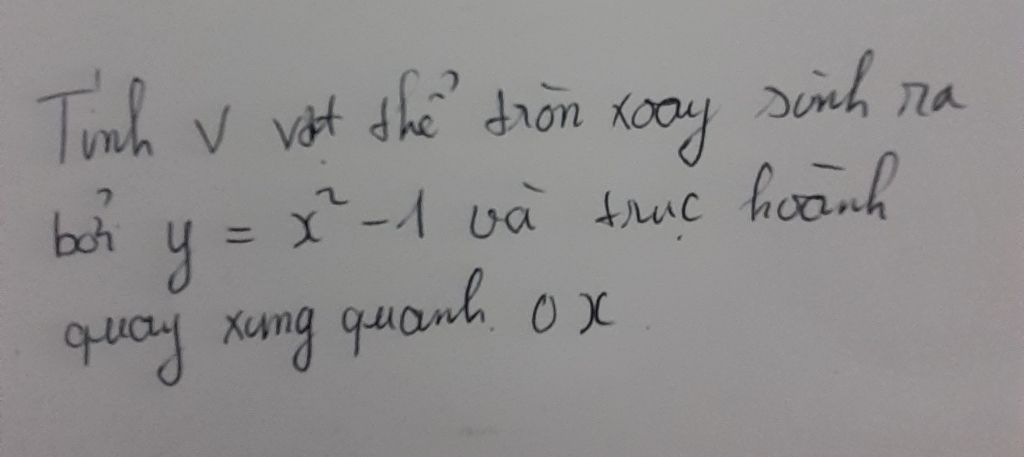 Tính V vật thể tròn xoay sinh ra
bởi y = x² - 1 và trục hoành
quay xung quanh OX.